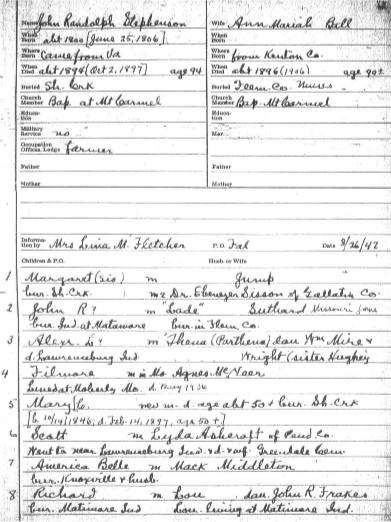 Name John Randolph Stephenson Wife Ann Mariah Bell
When Born abt 1800 [June 25, 1806] When Born
Where Born Came from Va Where Born from Kenton Co.
When Died abt 1894 (Oct 2, 1897) age 94 When Died abt 1896 (1906) age 90+
Buried Sh. Crk Buried
Church Member Bap. at Mt Carmel Church Member Bap Mt Carmel
Education Education
Military Service no Mar.
Occupation Offices, Lodge farmer
Father Father
Mother Mother
Information by Mrs Lina M. Fletcher P.O. Fal Date 8/26/42
Children & P.O. Husb. or Wife
1 Margaret (Sis) m Jump
bur. Sh. Crk. m 2 Dr. Ebenezer Sisson of Gallatin Co.
2 John R? m "Lade" Suthard
bur. Ind. at Matamare bur. in Flem Co.
3 Alexr. L? m Thena (Parthena) dau Wm Mire &
d. Lawrenceburg Ind Wright (sister Hughey)
4 Filmore m in Mo. Agnes McVeer
Lived at Moberly Mo. d. 1936
5 Mary E. nev m. d. age abt 50+ bur. Sh. Crk
[b. 10/14/1846; d. Feb. 14, 1897, age 50+]
6 Scott m Lyda Ashcraft of Pend Co.
Went to near Lawrenceburg Ind & d. Greendale Cem
7 America Belle m Mack Middleton
bur. Knoxville & husb.
8 Richard m Lou dau. John R. Frakes
bur. Matimare Ind Lou living at Matimare Ind.